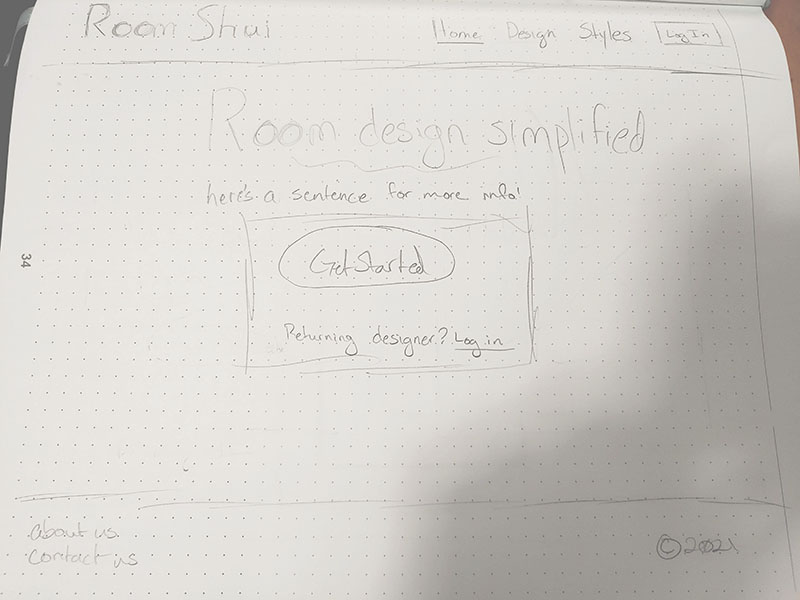 Room Shui
Home Design Styles Log In
Room design simplified
here's a sentence for more info!
Get Started
Returning designer? Log in
34
about us
contact us
© 2021